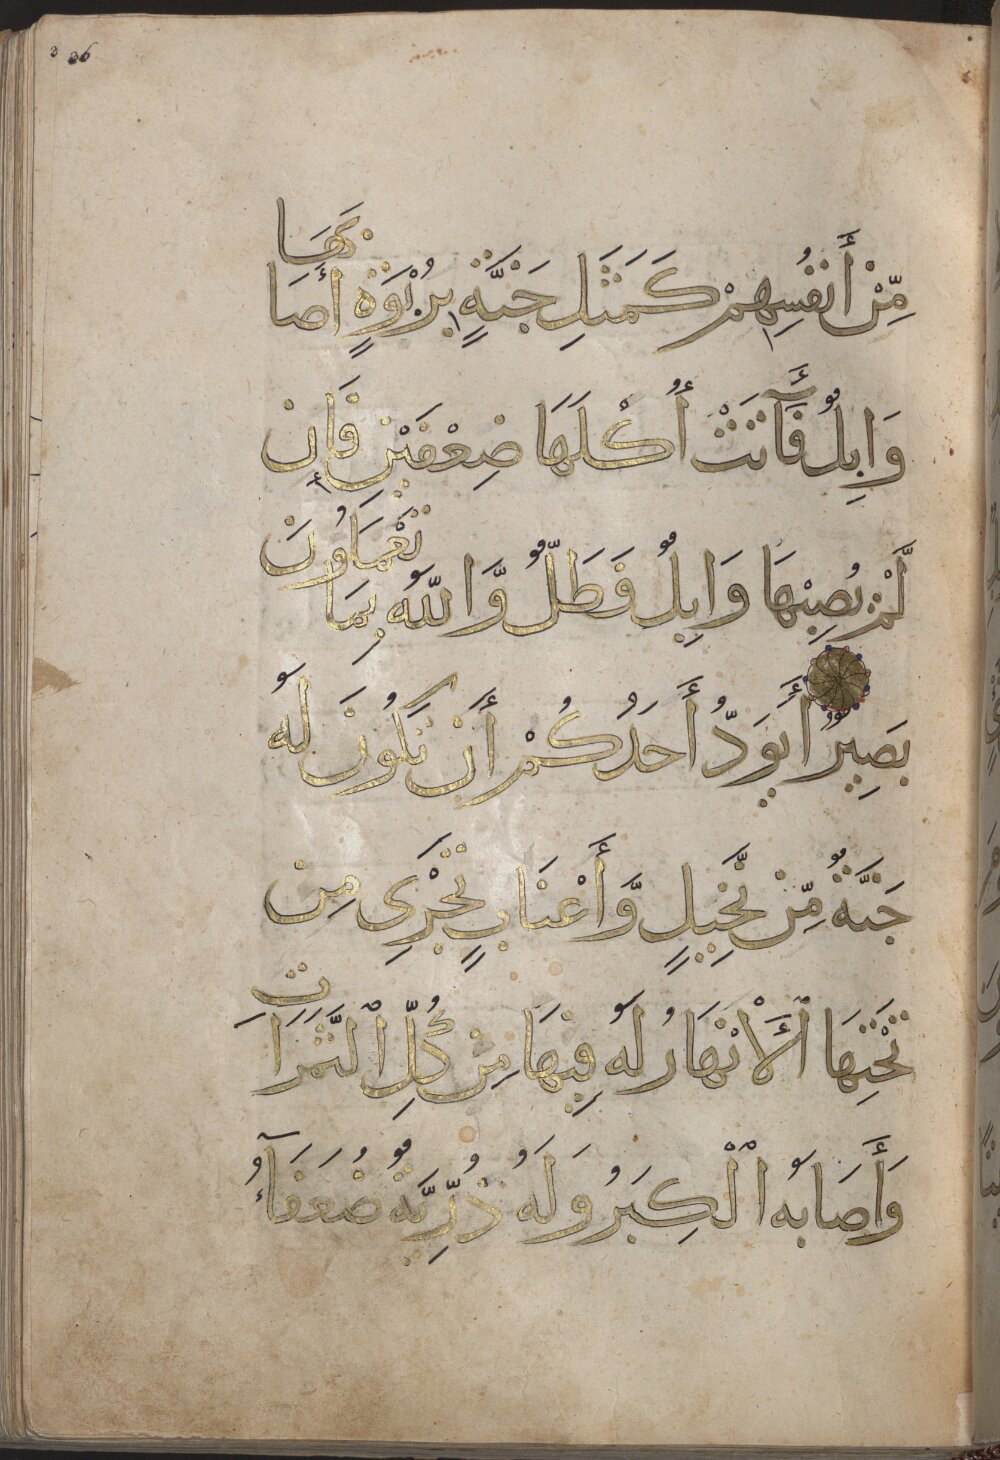 مِّنْ أَنفُسِهِمْ كَمَثَلِ جَنَّةٍ بِرُبْوَةٍ أَصَابَهَا
وَابِلٌ فَآتَتْ أُكُلَهَا ضِعْفَيْنِ فَإِن
لَّمْ يُصِبْهَا وَابِلٌ فَطَلٌّ وَاللَّهُ بِمَا تَعْمَلُونَ
بَصِيرٌ أَيَوَدُّ أَحَدُكُمْ أَن تَكُونَ لَهُ
جَنَّةٌ مِّن نَّخِيلٍ وَّأَعْنَابٍ تَجْرِي مِن
تَحْتِهَا الْأَنْهَارُ لَهُ فِيهَا مِن كُلِّ الثَّمَرَاتِ
وَأَصَابَهُ الْكِبَرُ وَلَهُ ذُرِّيَّةٌ ضُعَفَآءُ